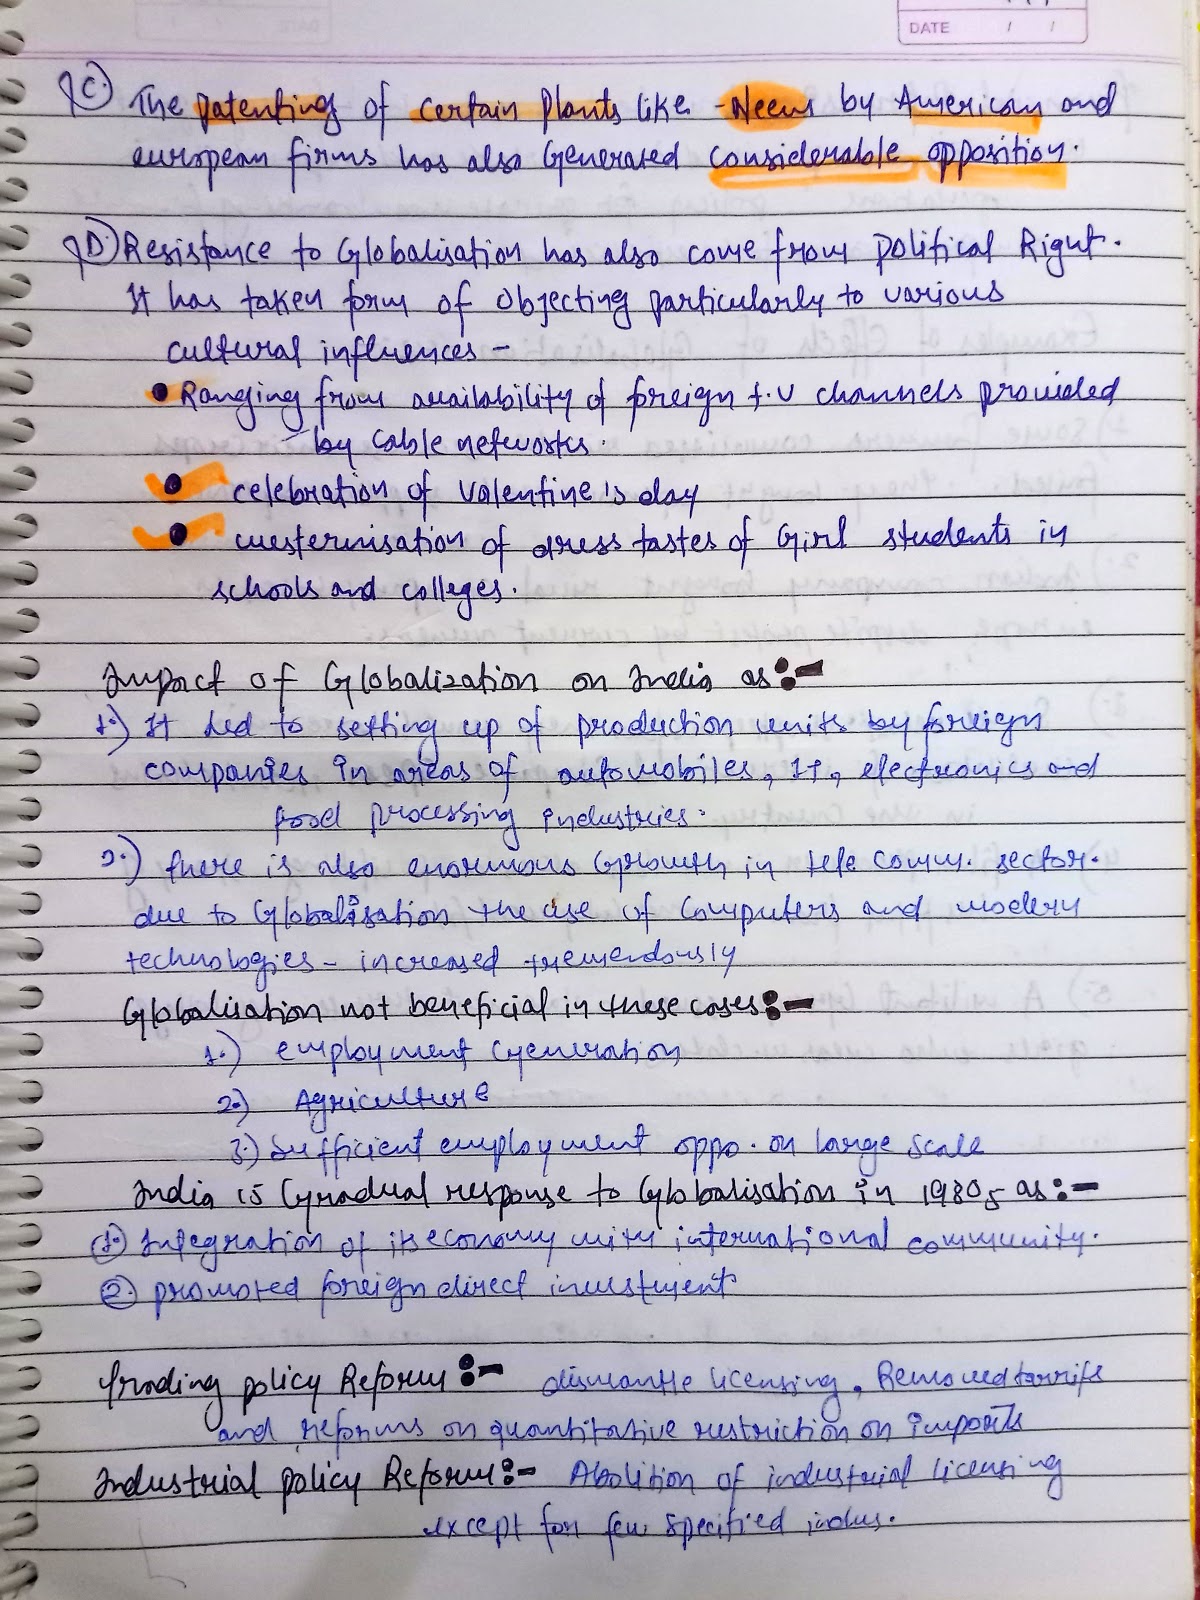 DATE / /
(C) The patenting of certain plants like - Neem by American and
european firms has also Generated considerable opposition.
(D) Resistance to Globalisation has also come from political Right.
It has taken form of objecting particularly to various
cultural influences -
• Ranging from availability of foreign t.v channels provided
by cable networks.
• celebration of valentine's day
• westernisation of dress tastes of Girl students in
schools and colleges.
Impact of Globalization on India as:-
1.) It led to setting up of production units by foreign
companies in areas of automobiles, It, electronics and
food processing industries.
2.) there is also enormous Growth in tele comm. sector.
due to Globalisation the use of computers and modern
technologies - increased tremendously
Globalisation not beneficial in these cases:-
1.) employment Generation
2.) Agriculture
3.) Sufficient employment oppo. on large scale
India is Gradual response to Globalisation in 1980s as:-
(1.) Integration of its economy with international community.
(2.) promoted foreign direct investment
Trading policy Reform:- dismantle licensing, Removed tarrifs
and reforms on quantitative restriction on imports
Industrial policy Reform:- Abolition of industrial licensing
except for few specified indus.